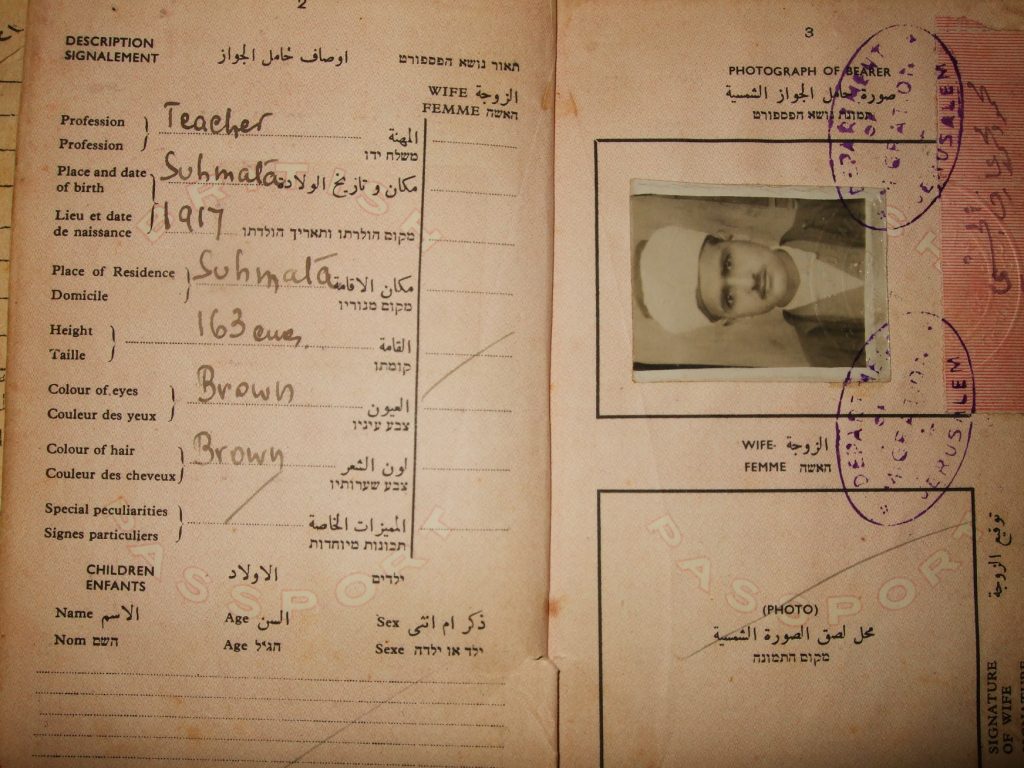 2
DESCRIPTION
SIGNALEMENT
اوصاف حامل الجواز
תאור נושא הפספורט
WIFE الزوجة
FEMME האשה
Profession
Teacher
المهنة
Profession
משלח ידו
Place and date
of birth
Suhmata
مكان و تاريخ الولادة
Lieu et date
de naissance
1917
מקום הולדתו ותאריך הולדתו
Place of Residence
Suhmata
مكان الاقامة
Domicile
מקום מגוריו
Height
163 cms.
القامة
Taille
קומתו
Colour of eyes
Brown
العيون
Couleur des yeux
צבע עיניו
Colour of hair
Brown
لون الشعر
Couleur des cheveux
צבע שערותיו
Special peculiarities
المميزات الخاصة
Signes particuliers
תכונות מיוחדות
CHILDREN
ENFANTS
الاولاد
ילדים
Name الاسم
Age السن
Sex ذكر ام انثى
Nom השם
Age הגיל
Sexe ילד או ילדה
PASSPORT
3
PHOTOGRAPH OF BEARER
صورة حامل الجواز الشمسية
תמונת נושא הפספורט
DEPARTMENT
OF
MIGRATION
JERUSALEM
WIFE- الزوجة
FEMME האשה
DEPARTMENT
OF
MIGRATION
JERUSALEM
(PHOTO)
محل لصق الصورة الشمسية
מקום התמונה
PASSPORT
توقيع الزوجة
SIGNATURE
OF WIFE